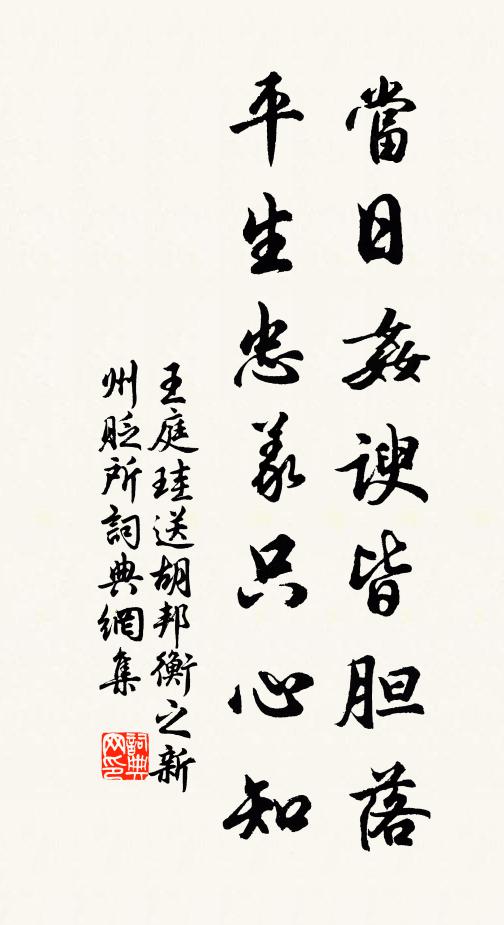 當日姦諛皆胆落
平生忠義只心知
王庭珪送胡邦衡之新
州貶所詞典網集
詞典
网印